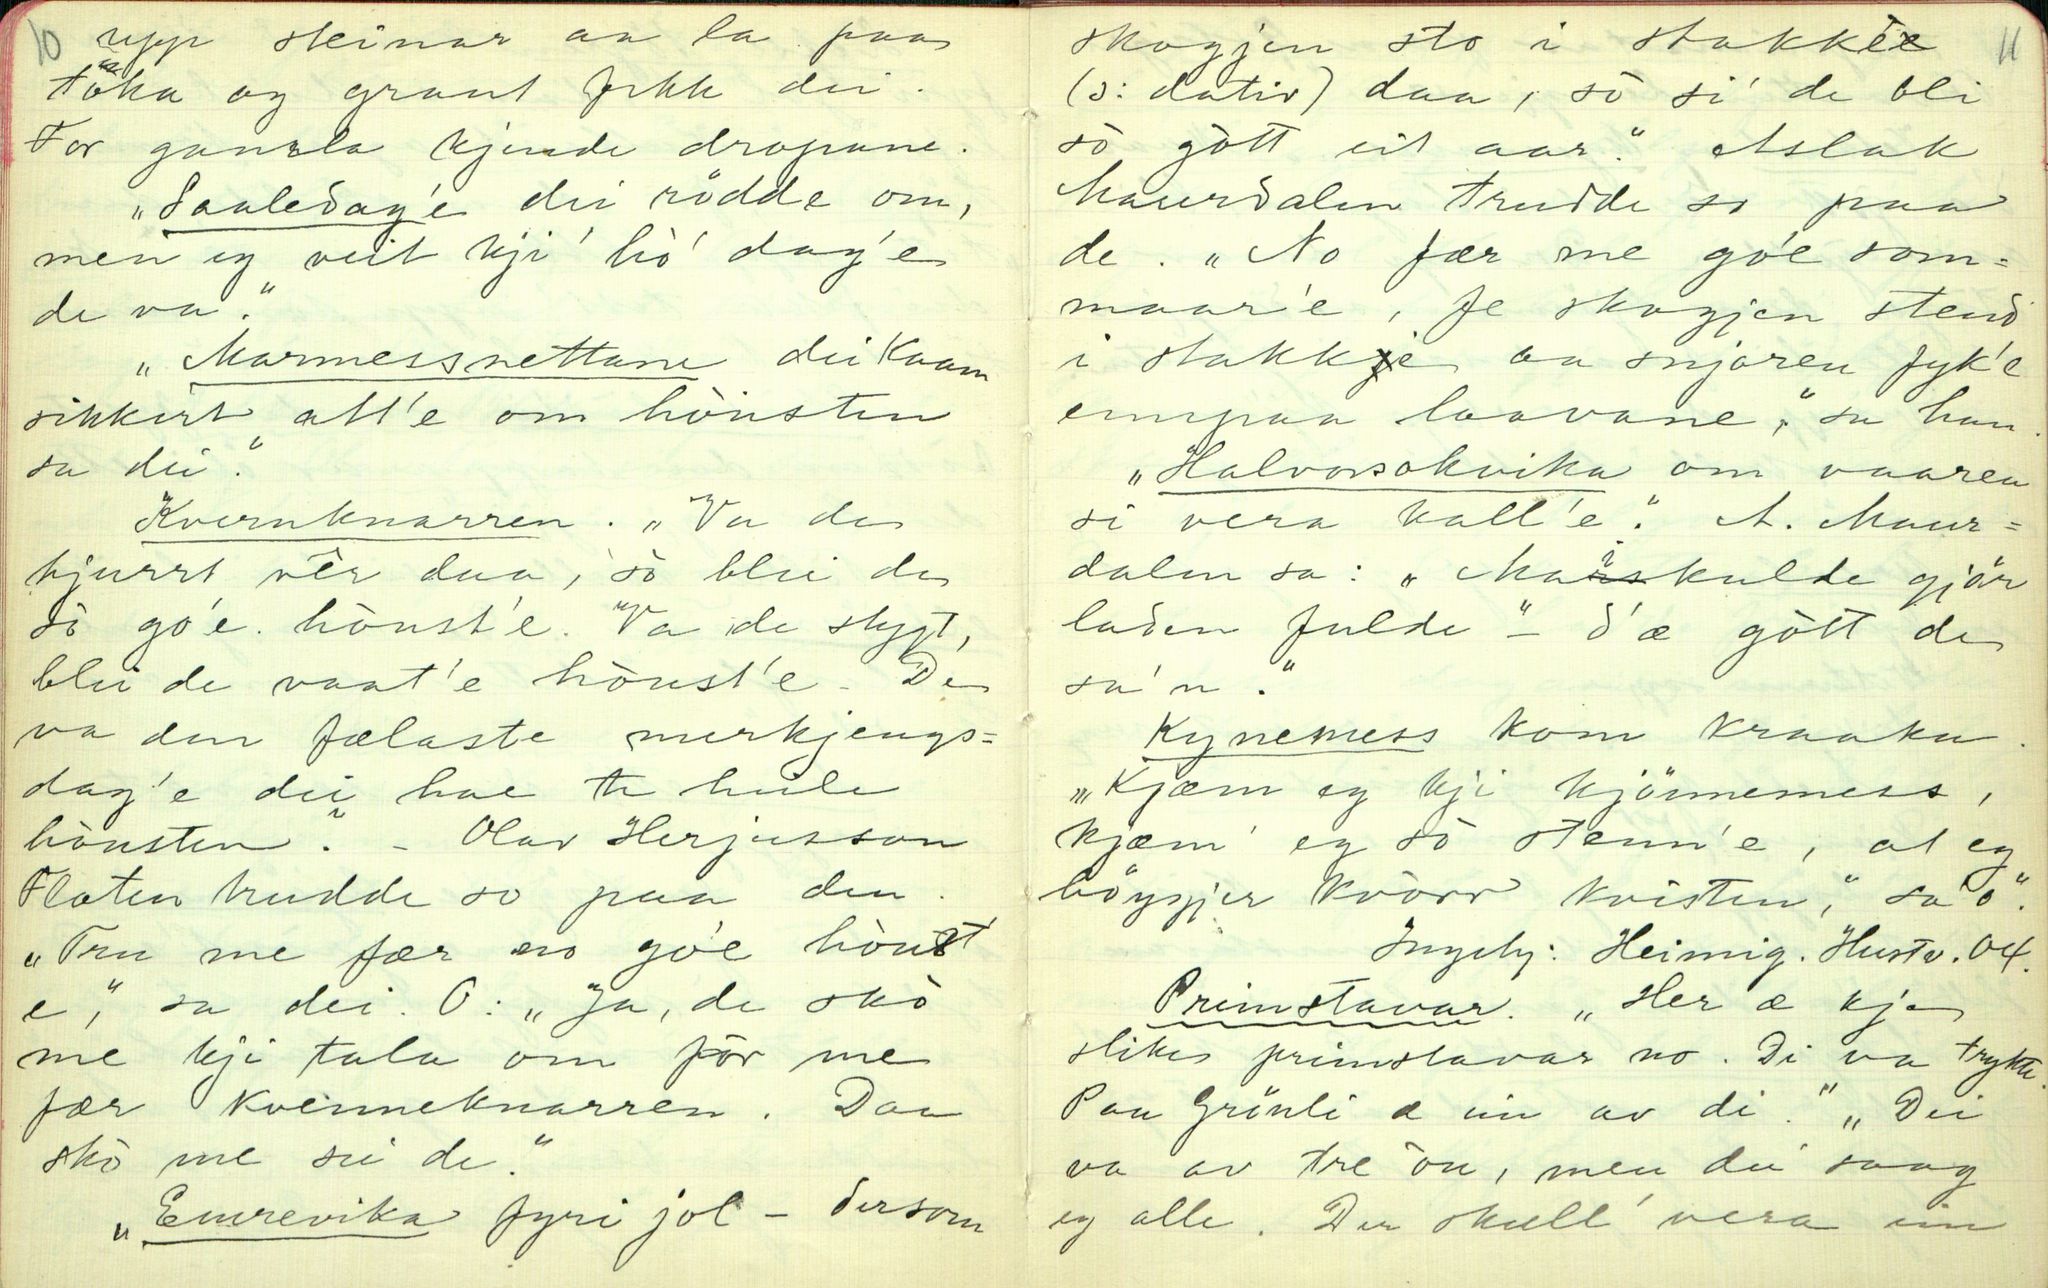 10
upp steinar aa la paa
tåka og graut fekk dei.
For gamla kjende dropane.
"Saaledag'e dei rødde om,
men eg veit kji' hò' dag'e
de va."
"Marmessnettane dei kaam
sikkert att'e om hònsten
sa dei."
Kvernknarren. "Va de
kjurrt vêr daa, sò blei de
sò go'e hònst'e. Va de stygt,
blei de vaat'e hònst'e. De
va den fælaste merkjengs=
dag'e dei hae te heile
hònsten." - Olav Herjusson
Floten trudde so paa den.
"Tru me fær no go'e hònst
e," sa dei. O: "Ja, de skò
me kji tala om før me
fær kvenneknarren. Daa
skò me sei de."
"Emrevika fyri jol - dersom
11
skogjen sto i stakkèe
(ɔ: dativ) daa, sò si' de bli
sò gòtt eit aar." Aslak
Maurdalen trudde so paa
de. "No fær me go'e som=
maar'e, fe skogjen stend
i stakkje aa snjoren fyk'e
ennpaa laavane," sa han.
"Halvorsokvika om vaaren
si vera kall'e." A. Maur=
dalen sa: "Marskulde gjør
laden fulde" - d'æ gòtt de
sa'n."
Kynemess kom kraaka.
"'Kjæm eg kji kjønnemess,
kjæm' eg sò stenn'e, at eg
bøygjer kvòrr kvisten,' sa'o".
Ingebj: Heimig. Hustv. 04.
Primstavar. "Her æ kje
slike primstavar no. Di va trykte.
Paa Grönli æ ein av di." "Dei
va av tre òu, men dei saag
eg alle. Der skull' vera ein